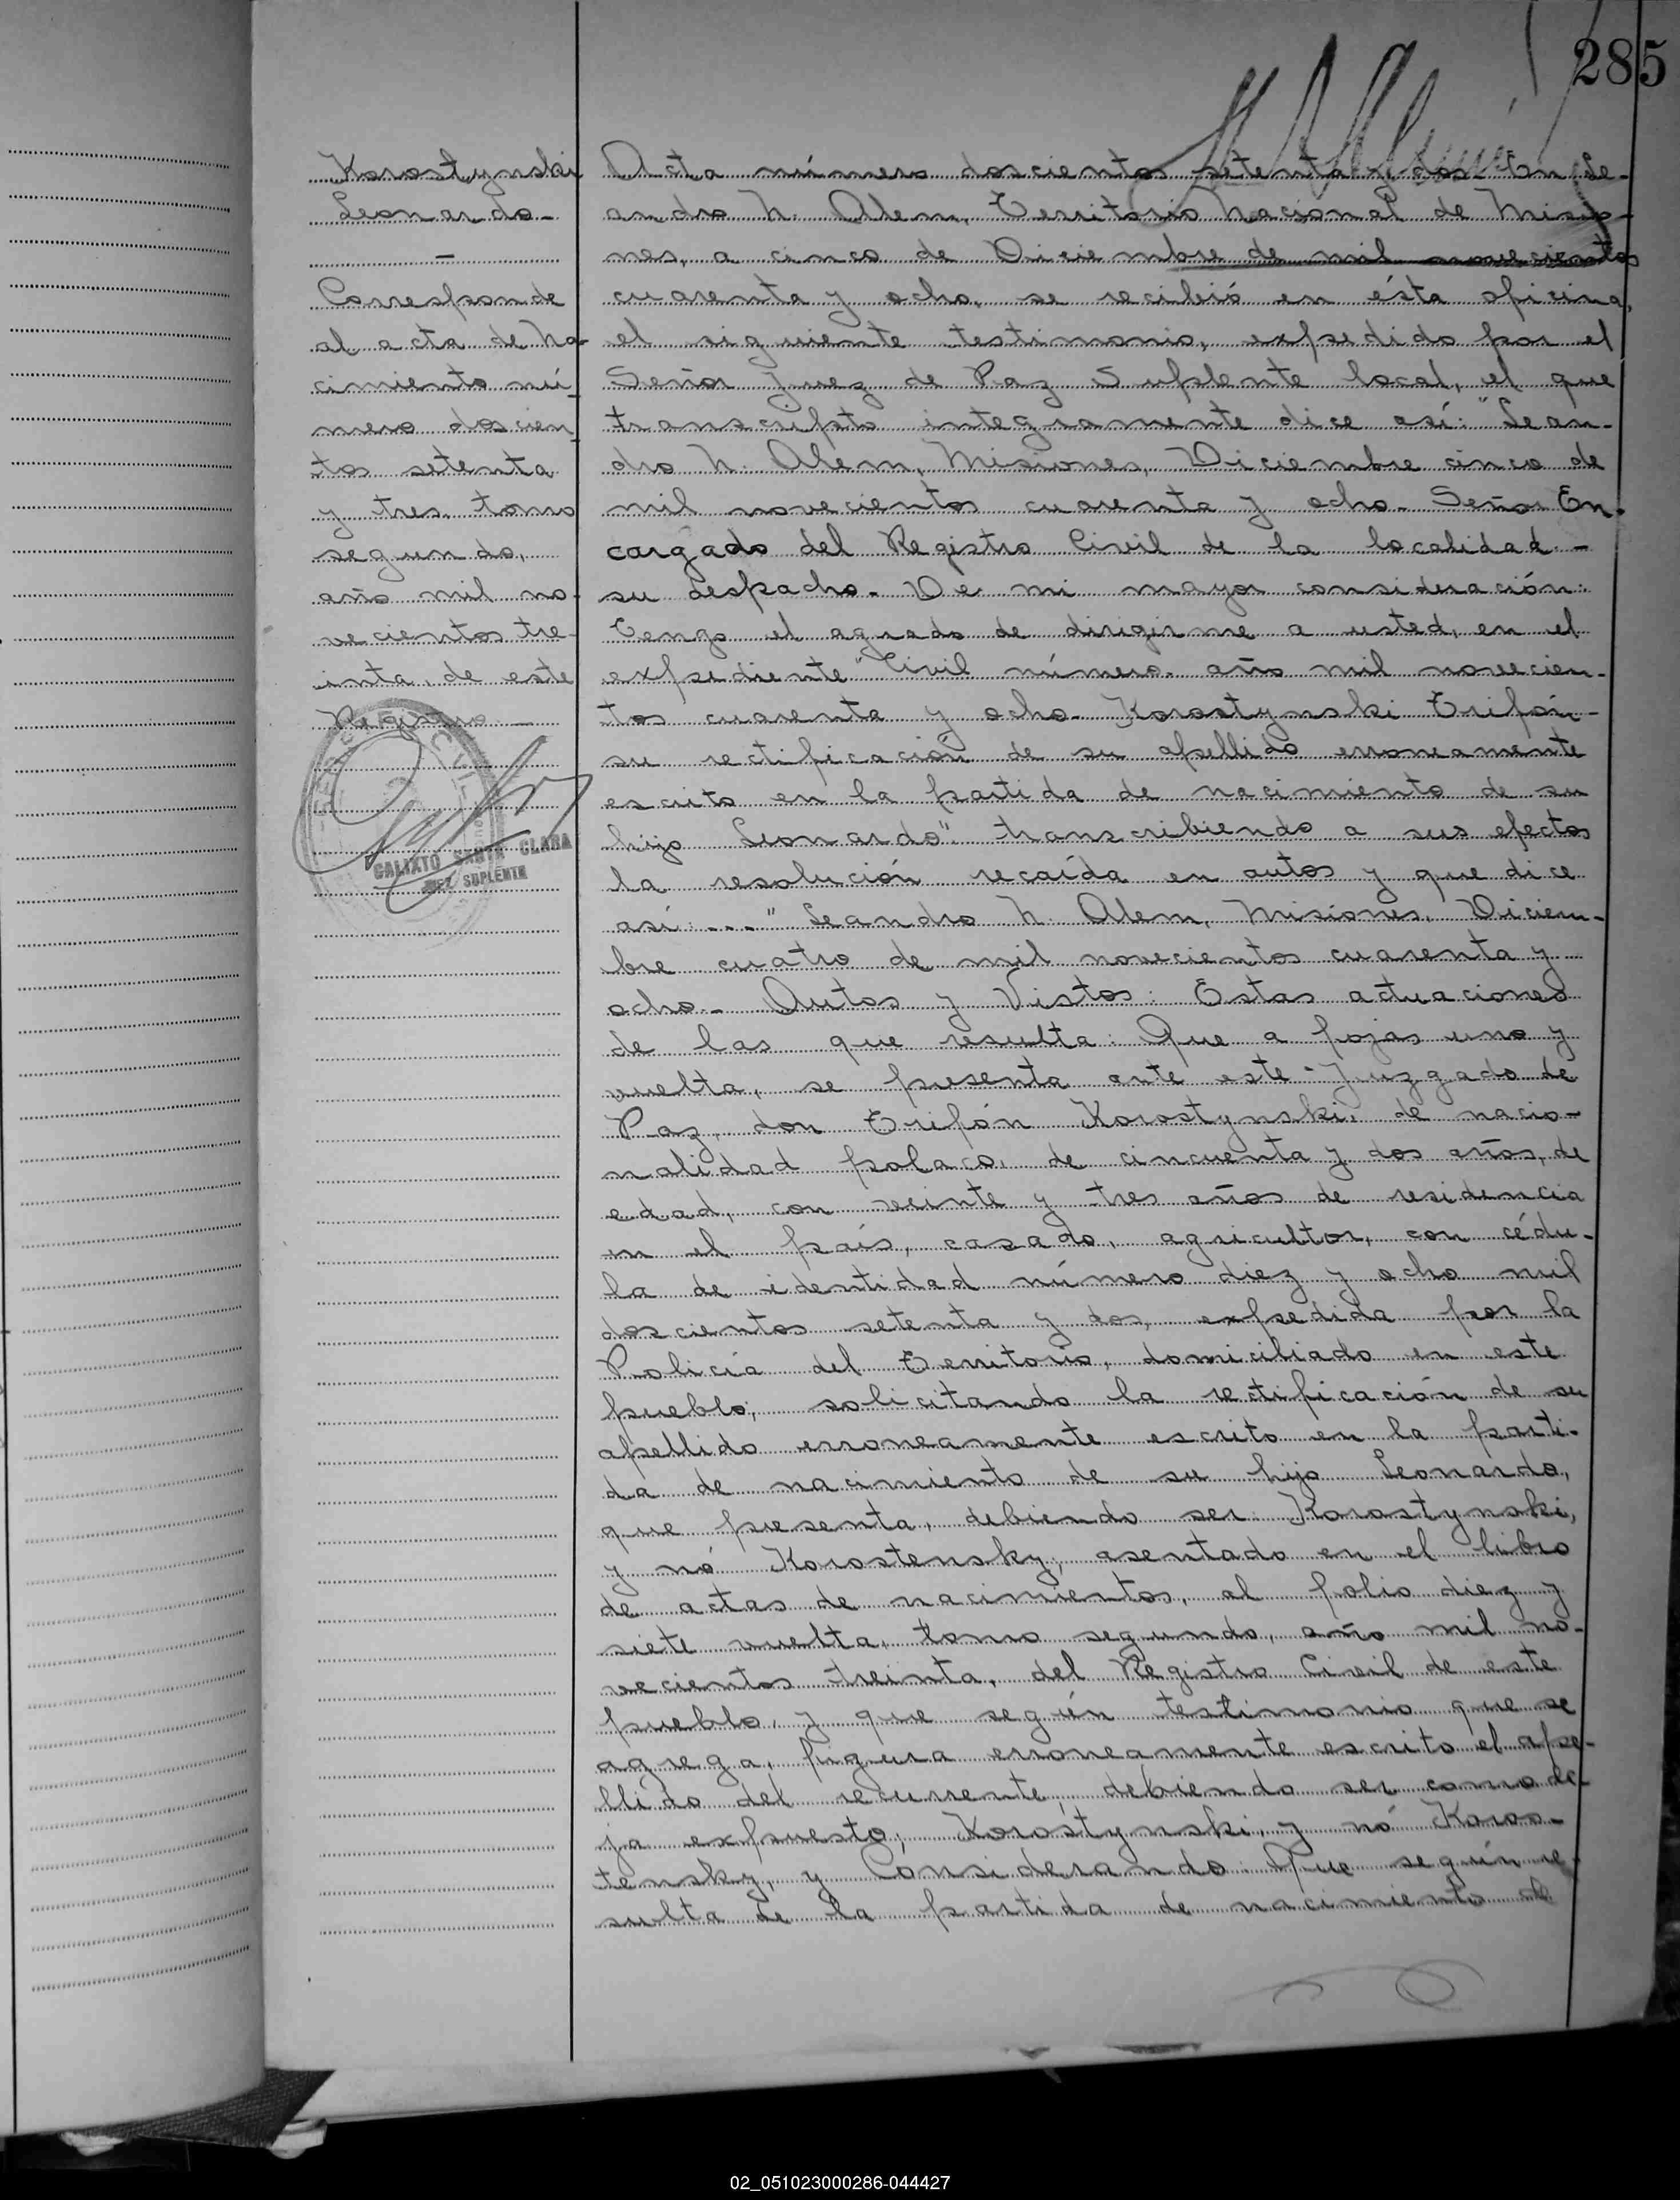 285
Korostynski
Leonardo-
-
Corresponde
al acta de na-
cimiento nú-
mero doscien-
tos setenta
y tres, tomo
segundo,
año mil no-
vecientos tre-
inta, de este
Registro.-
CALIXTO SANTA CLARA
JUEZ SUPLENTE
Acta número doscientos setenta y dos En Le-
andro N. Alem, Territorio Nacional de Misio-
nes, a cinco de Diciembre de mil novecientos
cuarenta y ocho, se recibió en ésta oficina,
el siguiente testimonio, expedido por el
Señor Juez de Paz Suplente local, el que
transcripto integramente dice así: "Lean-
dro N. Alem, Misiones, Diciembre cinco de
mil novecientos cuarenta y ocho- Señor En-
cargado del Registro Civil de la localidad.-
su despacho- De mi mayor consideración:
Tengo el agrado de dirigirme a usted, en el
expediente "Civil número. año mil novecien-
tos cuarenta y ocho- Korostynski Trifón-
su rectificación de su apellido erroneamente
escrito en la partida de nacimiento de su
hijo Leonardo", transcribiendo a sus efectos
la resolución recaída en autos y que dice
así:..." Leandro N. Alem, Misiones, Diciem-
bre cuatro de mil novecientos cuarenta y
ocho.- Autos y Vistos: Estas actuaciones
de las que resulta: Que a fojas uno y
vuelta, se presenta ante este Juzgado de
Paz, don Trifón Korostynski, de nacio-
nalidad polaco, de cincuenta y dos años, de
edad, con veinte y tres años de residencia
en el país, casado, agricultor, con cédu-
la de identidad número diez y ocho mil
doscientos setenta y dos, expedida por la
Policía del Territorio, domiciliado en este
pueblo, solicitando la rectificación de su
apellido erroneamente escrito en la parti-
da de nacimiento de su hijo Leonardo,
que presenta, debiendo ser: Korostynski,
y nó Korostensky, asentado en el libro
de actas de nacimientos, al folio diez y
siete vuelta, tomo segundo, año mil no-
vecientos treinta, del Registro Civil de este
pueblo, y que según testimonio que se
agrega, figura erroneamente escrito el ape-
llido del recurrente, debiendo ser como de-
ja expuesto, Korostynski, y nó Koros-
tensky, y Considerando: Que según re-
sulta de la partida de nacimiento de
02_051023000286-044427